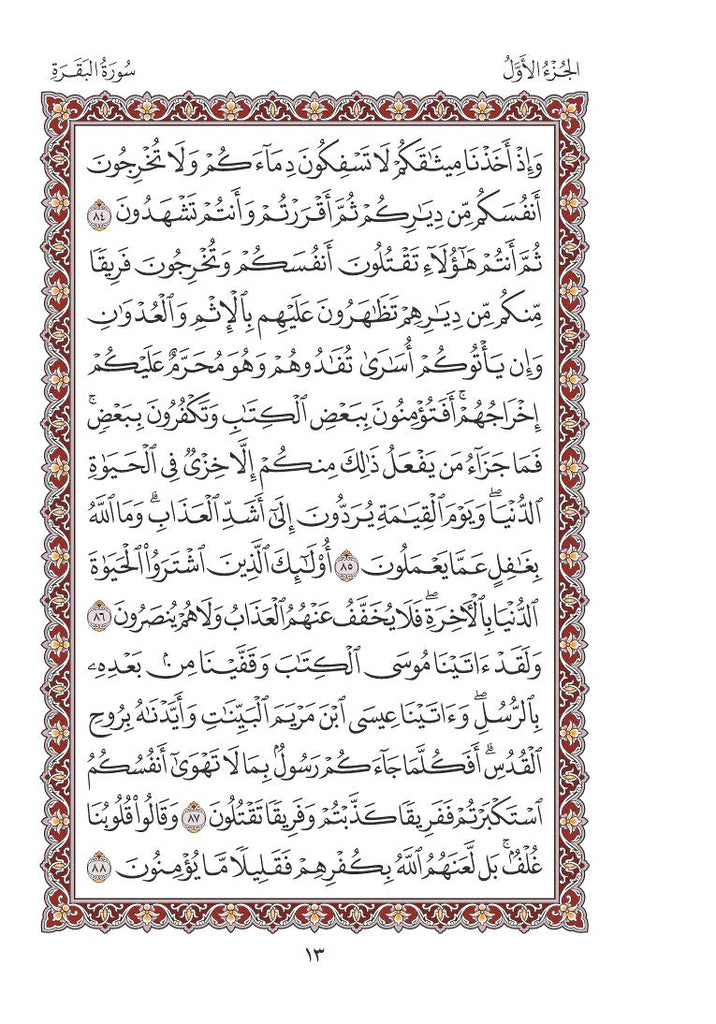 الجُزْءُ الأَوَّلُ
سُورَةُ البَقَرَةِ
وَإِذْ أَخَذْنَا مِيثَٰقَكُمْ لَا تَسْفِكُونَ دِمَآءَكُمْ وَلَا تُخْرِجُونَ
أَنفُسَكُم مِّن دِيَٰرِكُمْ ثُمَّ أَقْرَرْتُمْ وَأَنتُمْ تَشْهَدُونَ ٨٤
ثُمَّ أَنتُمْ هَٰٓؤُلَآءِ تَقْتُلُونَ أَنفُسَكُمْ وَتُخْرِجُونَ فَرِيقًا
مِّنكُم مِّن دِيَٰرِهِمْ تَظَٰهَرُونَ عَلَيْهِم بِٱلْإِثْمِ وَٱلْعُدْوَٰنِ
وَإِن يَأْتُوكُمْ أُسَٰرَىٰ تُفَٰدُوهُمْ وَهُوَ مُحَرَّمٌ عَلَيْكُمْ
إِخْرَاجُهُمْ ۚ أَفَتُؤْمِنُونَ بِبَعْضِ ٱلْكِتَٰبِ وَتَكْفُرُونَ بِبَعْضٍ ۚ
فَمَا جَزَآءُ مَن يَفْعَلُ ذَٰلِكَ مِنكُمْ إِلَّا خِزْىٌ فِى ٱلْحَيَوٰةِ
ٱلدُّنْيَا ۖ وَيَوْمَ ٱلْقِيَٰمَةِ يُرَدُّونَ إِلَىٰٓ أَشَدِّ ٱلْعَذَابِ ۗ وَمَا ٱللَّهُ
بِغَٰفِلٍ عَمَّا يَعْمَلُونَ ٨٥ أُو۟لَٰٓئِكَ ٱلَّذِينَ ٱشْتَرَوُا۟ ٱلْحَيَوٰةَ
ٱلدُّنْيَا بِٱلْءَاخِرَةِ ۖ فَلَا يُخَفَّفُ عَنْهُمُ ٱلْعَذَابُ وَلَا هُمْ يُنصَرُونَ ٨٦
وَلَقَدْ ءَاتَيْنَا مُوسَى ٱلْكِتَٰبَ وَقَفَّيْنَا مِنۢ بَعْدِهِۦ
بِٱلرُّسُلِ ۖ وَءَاتَيْنَا عِيسَى ٱبْنَ مَرْيَمَ ٱلْبَيِّنَٰتِ وَأَيَّدْنَٰهُ بِرُوحِ
ٱلْقُدُسِ ۗ أَفَكُلَّمَا جَآءَكُمْ رَسُولٌۢ بِمَا لَا تَهْوَىٰٓ أَنفُسُكُمُ
ٱسْتَكْبَرْتُمْ فَفَرِيقًا كَذَّبْتُمْ وَفَرِيقًا تَقْتُلُونَ ٨٧ وَقَالُوا۟ قُلُوبُنَا
غُلْفٌۢ ۚ بَل لَّعَنَهُمُ ٱللَّهُ بِكُفْرِهِمْ فَقَلِيلًا مَّا يُؤْمِنُونَ ٨٨
١٣